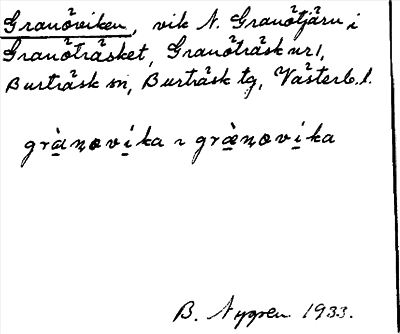 Granöviken, vik N. Granötjärn i
Granöträsket, Granöträsk nr 1,
Burträsk sn, Burträsk tg, Västerb. l.
grànovika ~ grænovika
B. Nygren 1933.